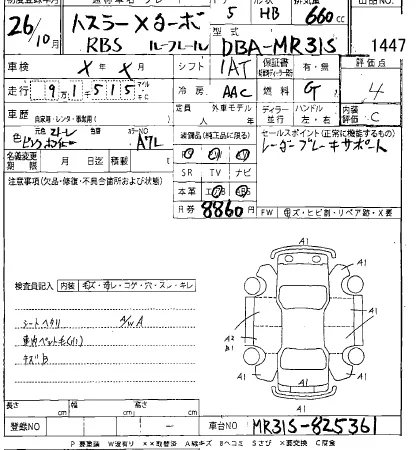 ハスラー Xターボ 5 HB 660 cc
26/10月 RBS ルーフレール 型式 DBA-MR31S 1447
車検 X年 X月 シフト IAT 保証書 有・無 評価点
走行 9万1千515 冷房 AAC 燃料 G 4
車歴 自家用・レンタ・事業用( ) 定員 人 外車モデル 年 ディーラー 並行 ハンドル 左・右 内装 C
色 元色 2トーン ピンク カラーNO A7L 装備品(純正品に限る) セールスポイント(正常に機能するもの)
レーダーブレーキサポート
名義変更期限 月 日迄 積載 t SR TV ナビ
注意事項(欠品・修復・不具合箇所および状態) 本革 エアB
月券 8860円 FW キズ・ヒビ割・リペア跡・X要
検査員記入 内装 キズ・汚レ・コゲ・穴・スレ・キレ
シートヘタリ A/W A
車内ペット毛(小)
キズB
A1
A1 A1
A1
A2
B1
A1 A1
A1
長さ cm 幅 cm 高さ cm
登録NO ー 車台NO MR31S-825361
P 要塗装 W波有り ××取替済 A線キズ Bヘコミ Sさび ×要交換 C腐食